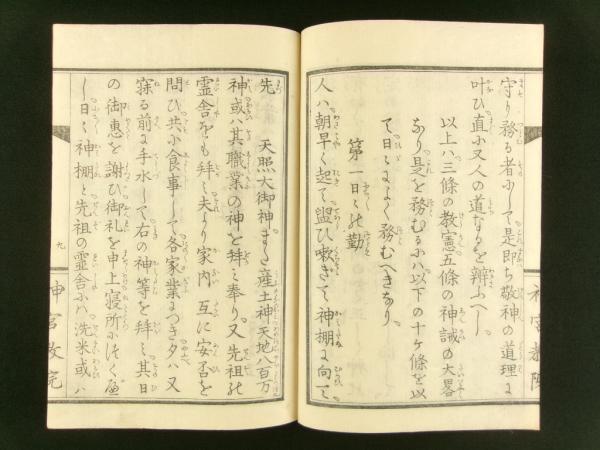 守り務る者にして是即ち敬神の道理に
叶ひ直に又人の道なるを辨ふべし
以上ハ三條の教憲五條の神誡の大畧
なり是を務むるにハ以下の十ケ條を以
て日々によく務むべきなり
第一日々の勤
人ハ朝早く起て盥ひ嗽ぎて神棚に向ひて
先 天照大御神また産土神天地八百万
神或ハ其職業の神を拜ミ奉り又先祖の
霊舎をも拜ミ夫より家内互に安否を
問ひ共に食事して各家業につき夕ハ又
寐る前に手水して右の神等を拜ミ其日
の御恵を謝び御礼を申上寝所につくべ
し日々神棚と先祖の霊舎にハ洗米或ハ
九
神宮教院